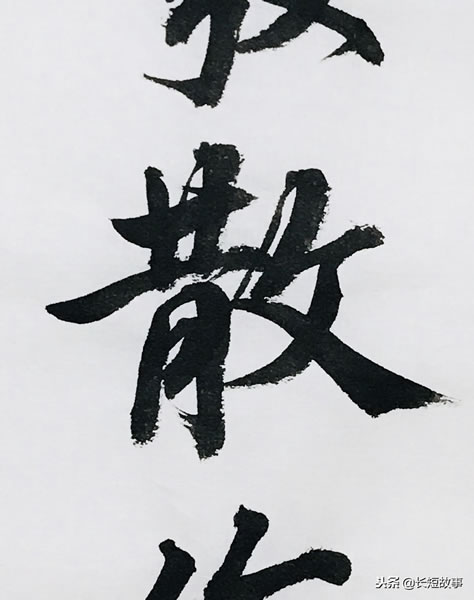 散
头条 @长短故事